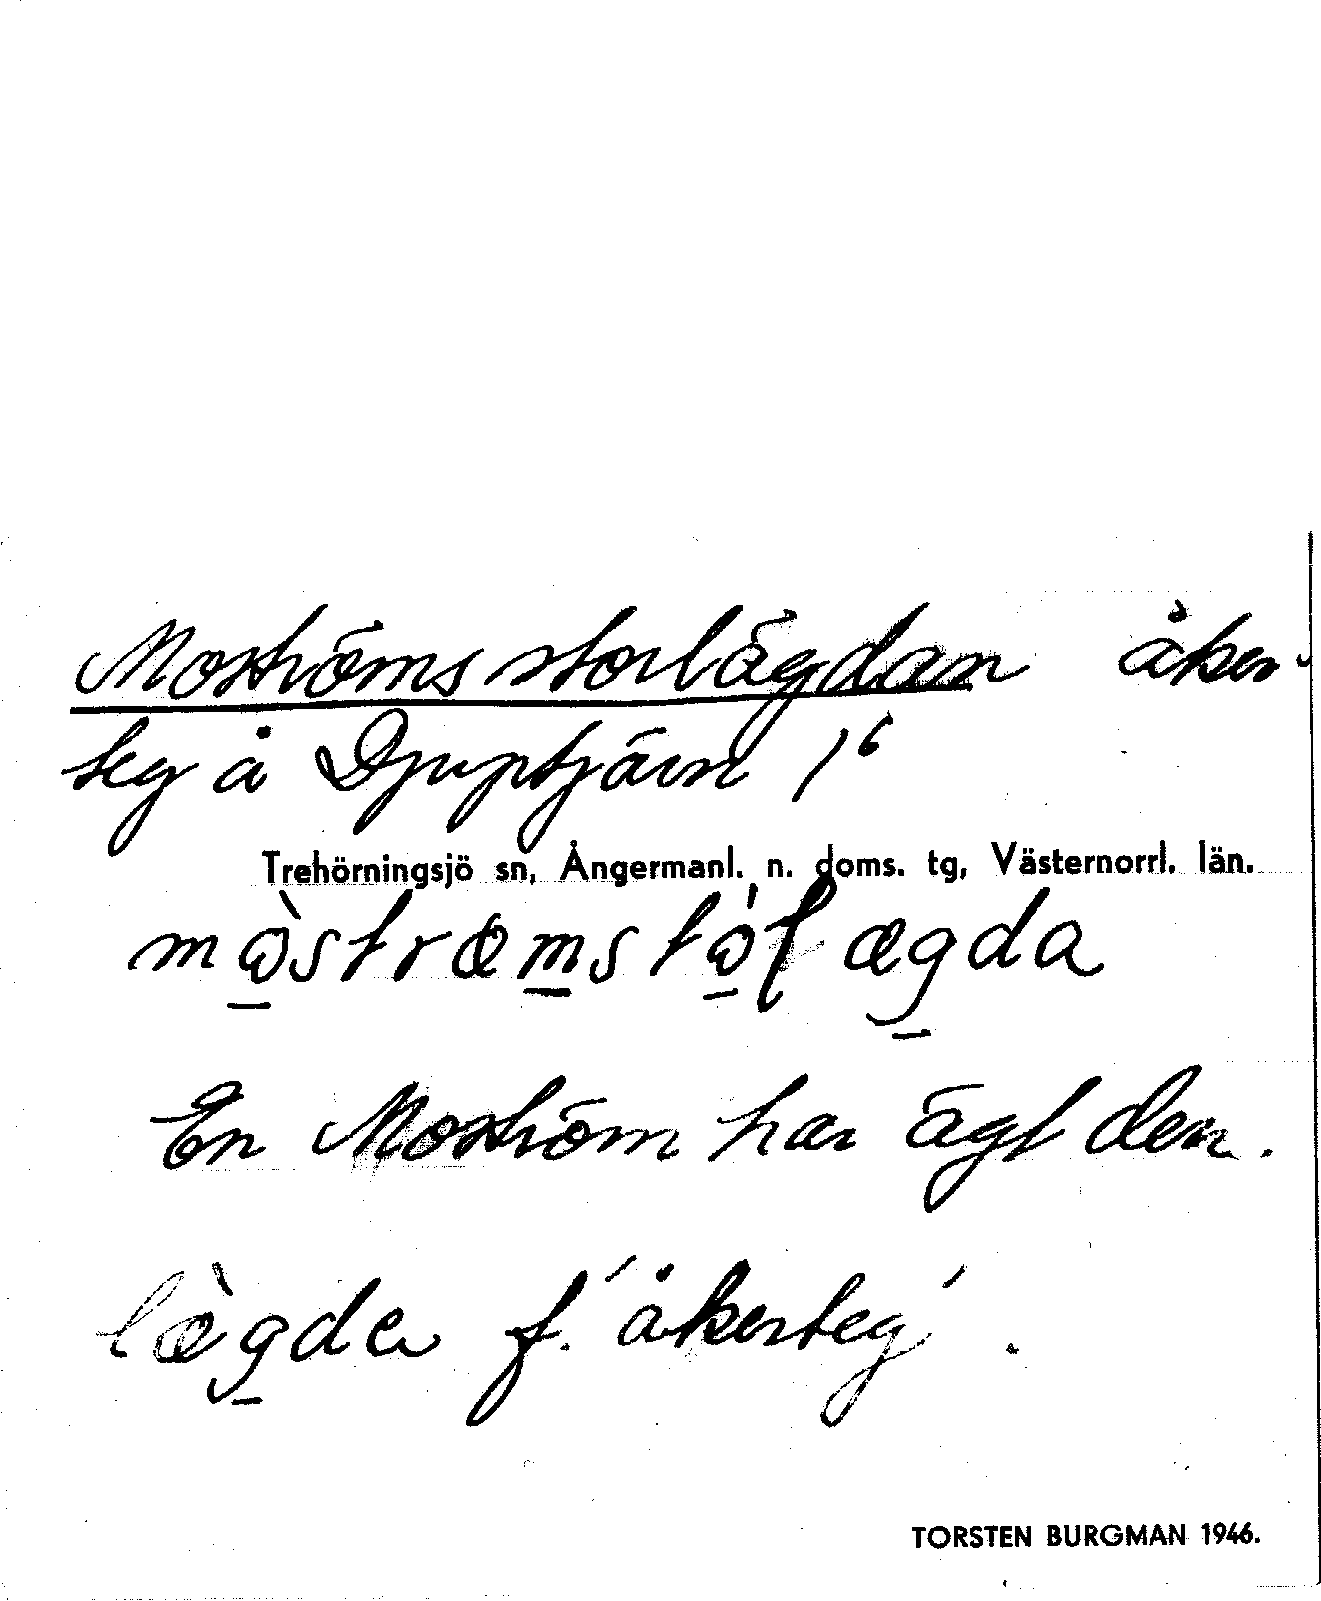 Moströms storlägdan åker-
teg å Djuptjärn 1⁶
Trehörningsjö sn, Ångermanl. n. doms. tg, Västernorrl. län.
En Moström har ägt den.
lægda f. 'åkerteg'.
TORSTEN BURGMAN 1946.